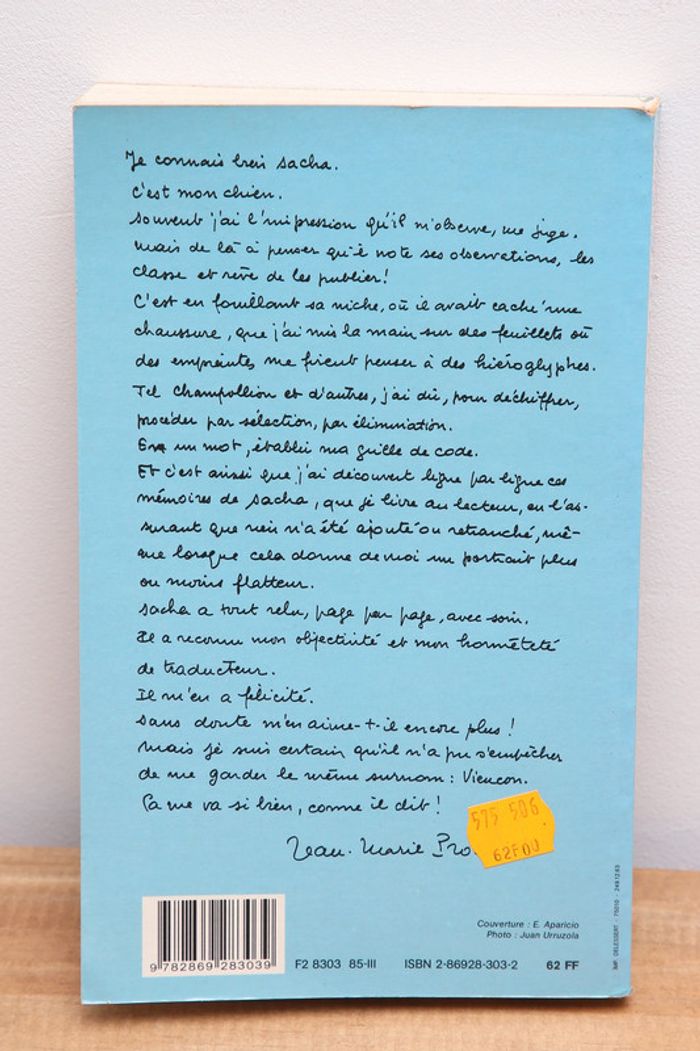 Je connais bien Sacha.
C'est mon chien.
Souvent j'ai l'impression qu'il m'observe, me juge.
Mais de là à penser qu'il note ses observations, les
classe et rêve de les publier!
C'est en fouillant sa niche, où il avait caché une
chaussure, que j'ai mis la main sur des feuillets où
des empreintes me firent penser à des hiéroglyphes.
Tel Champollion et d'autres, j'ai dû, pour déchiffrer,
procéder par sélection, par élimination.
En un mot, établir ma grille de code.
Et c'est ainsi que j'ai découvert ligne par ligne ces
mémoires de Sacha, que je livre au lecteur, en l'as-
surant que rien n'a été ajouté ou retranché, mê-
me lorsque cela donne de moi un portrait plus
ou moins flatteur.
Sacha a tout relu, page par page, avec soin.
Il a reconnu mon objectivité et mon honnêteté
de traducteur.
Il m'en a félicité.
Sans doute m'en aime-t-il encore plus!
Mais je suis certain qu'il n'a pu s'empêcher
de me garder le même surnom: Viencon.
Ça me va si bien, comme il dit!
Jean-Marie Pro
575 506
62F00
Couverture : E. Aparicio
Photo : Juan Urruzola
IMP. DELESSERT - 75010 - 249.12.63
9 782869 283039
F2 8303 85-III ISBN 2-86928-303-2 62 FF